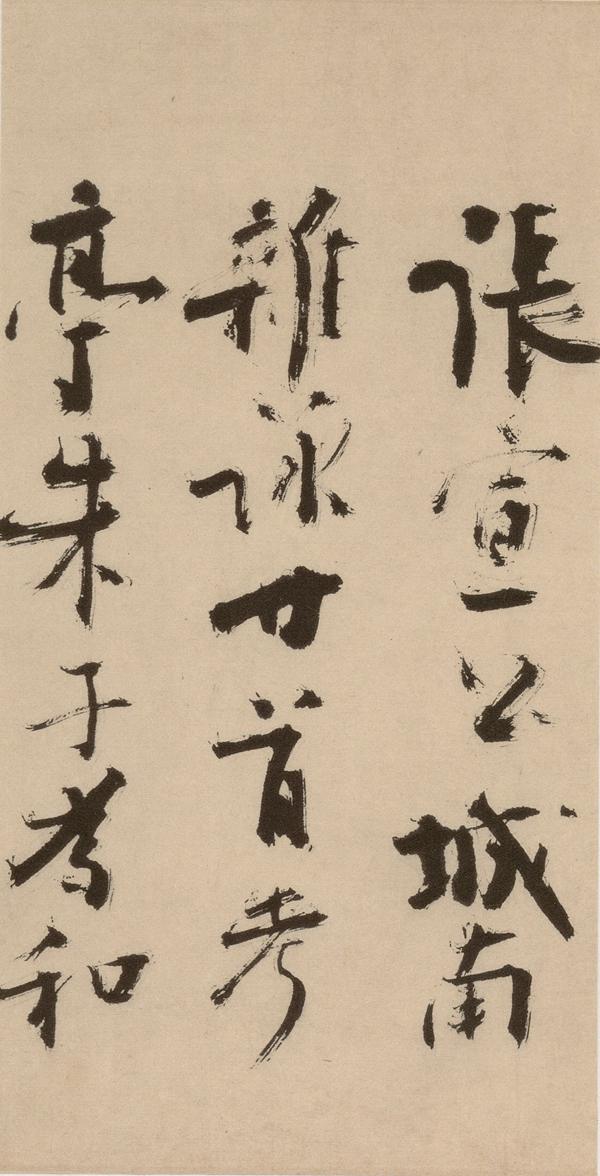 張宣公城南
雜詠廿首考
亭朱子為和